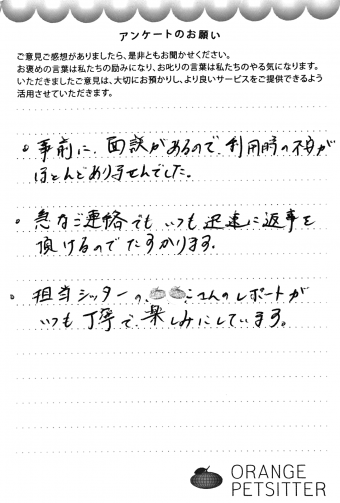 アンケートのお願い
ご意見ご感想がありましたら、是非ともお聞かせください。
お褒めの言葉は私たちの励みになり、お叱りの言葉は私たちのやる気になります。
いただきましたご意見は、大切にお預かりし、より良いサービスをご提供できるよう
活用させていただきます。
。事前に、面談があるので、利用時の不安が
ほとんどありませんでした。
。急なご連絡でも いつも 迅速に返事を
頂けるのでたすかります。
。担当シッターの、さんのレポートが
いつも丁寧で、楽しみにしています。
ORANGE
PETSITTER